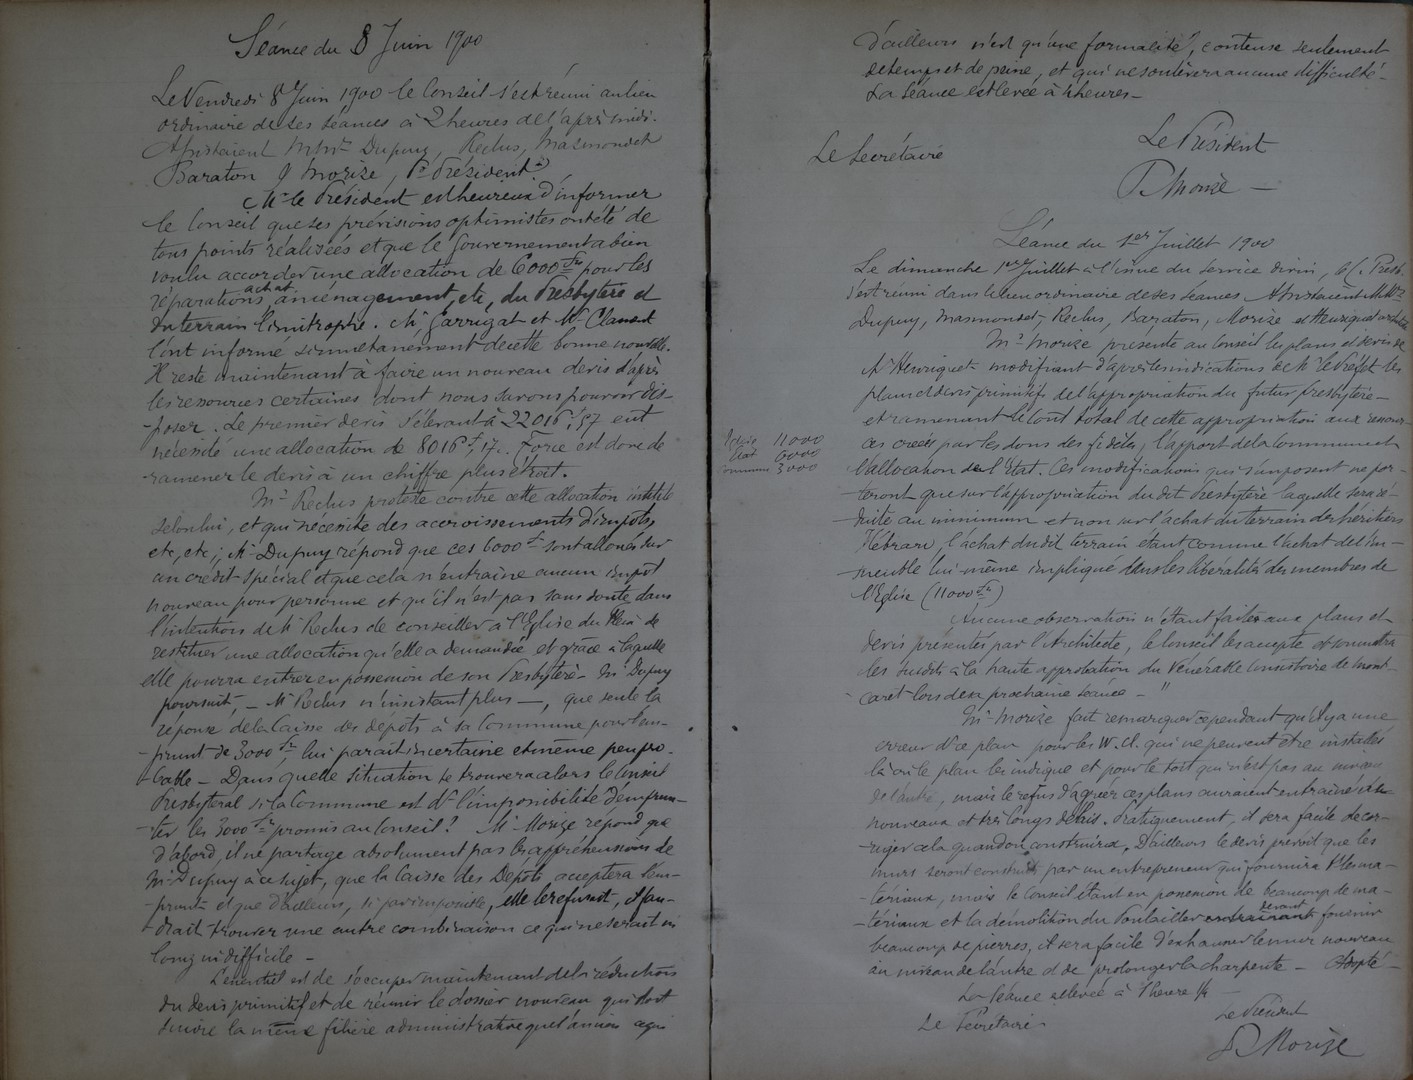 Séance du 8 Juin 1900
Le Vendredi 8 Juin 1900 le Conseil s'est réuni au lieu
ordinaire de ses séances à 2 heures de l'après midi.
Assistaient MMrs Dupuy, Reclus, Masmondet
Baraton & Morize, Pr Président
Mr le Président est heureux d'informer
le Conseil que ses prévisions optimistes ont été de
tous points réalisées et que le Gouvernement a bien
voulu accorder une allocation de 6000 frs pour les
réparations, achat, aménagement, etc, du Presbytère et
du terrain limitrophe. Mr Garrigat et Mr Clament
l'ont informé simultanément de cette bonne nouvelle.
Il reste maintenant à faire un nouveau devis d'après
les ressources certaines dont nous savons pouvoir dis-
poser. Le premier devis s'élevant à 22016 f, 57 eut
nécessité une allocation de 8016 f, 57c. Force est donc de
ramener le devis à un chiffre plus étroit.
Mr Reclus proteste contre cette allocation inutile
selon lui, et qui nécessite des accroissements d'impôts,
etc, etc; Mr Dupuy répond que ces 6000 f sont alloués sur
un crédit spécial et que cela n'entraîne aucun impôt
nouveau pour personne et qu'il n'est pas sans doute dans
l'intention de Mr Reclus de conseiller à l'Eglise du Fleix de
restituer une allocation qu'elle a demandée et grâce à laquelle
elle pourra entrer en possession de son Presbytère. Mr Dupuy
poursuit, – Mr Reclus n'insistant plus –, que seule la
réponse de la Caisse des dépôts à sa Commune pour l'em-
-prunt de 3000 frs, lui parait incertaine et même peu pro-
bable – Dans quelle situation se trouvera alors le Conseil
Presbytéral si la Commune est ds l'impossibilité d'emprun-
-ter les 3000 frs promis au Conseil? Mr Morize répond que
d'abord, il ne partage absolument pas les appréhensions de
Mr Dupuy à ce sujet, que la Caisse des Dépôts acceptera l'em-
-prunt et que d'ailleurs, si par impossible, elle le refusait, il fau-
-drait trouver une autre combinaison ce qui ne serait ni
long ni difficile –
L'essentiel est de s'occuper maintenant de la réduction
du devis primitif et de réunir le dossier nouveau qui doit
suivre la même filière administrative que l'ancien ce qui
d'ailleurs n'est qu'une formalité, couteuse seulement
de temps et de peine, et qui ne soulèvera aucune difficulté –
La Séance est levée à 4 heures –
Le Président
Le Secrétaire
P. Morize –
Séance du 1er Juillet 1900
Le dimanche 1er Juillet à l'issue du service divin, le C. Presb.
s'est réuni dans le lieu ordinaire de ses séances. Assistaient MMrs
Dupuy, Masmondet, Reclus, Baraton, Morize et Henriquet architecte
Mr Morize présente au Conseil les plans et devis de
Mr Henriquet modifiant d'après les indications de Mr le Préfet les
plan et devis primitifs de l'appropriation du futur presbytère –
et ramenant le coût total de cette appropriation aux ressour-
ces créées par les dons des fidèles, l'apport de la Commune et
l'allocation de l'Etat. Ces modifications qui s'imposent ne por-
teront que sur l'appropriation du dit Presbytère laquelle sera ré-
-duite au minimum et non sur l'achat du terrain des héritiers
l'achat du dit terrain étant comme l'achat de l'im-
meuble lui-même impliqué dans les libéralités des membres de
l'Eglise (11000 frs)
11000
Etat 6000
Commune 3000
Aucune observation n'étant faite aux plans et
devis présentés par l'Architecte, le Conseil les accepte et soumettra
les susdits à la haute approbation du Vénérable Consistoire de Mont-
caret lors de sa prochaine séance – "
Mr Morize fait remarquer cependant qu'il y a une
erreur ds ce plan pour les W.C. qui ne peuvent être installés
là où le plan les indique et pour le toit qui n'est pas au niveau
de l'autre, mais le refus d'agréer ces plans auraient entraîné de
nouveaux et très longs délais. Pratiquement, il sera facile de cor-
-riger cela quand on construira. D'ailleurs le devis prévoit que les
murs seront construits par un entrepreneur qui fournira les ma-
-tériaux, mais le Conseil étant en possession de beaucoup de ma-
-tériaux et la démolition du Poulailler entrainant devant fournir
beaucoup de pierres, il sera facile d'exhausser le mur nouveau
au niveau de l'autre et de prolonger la charpente – Adopté –
La Séance est levée à 1 heure 1/4 –
Le Président
Le Secrétaire
P. Morize